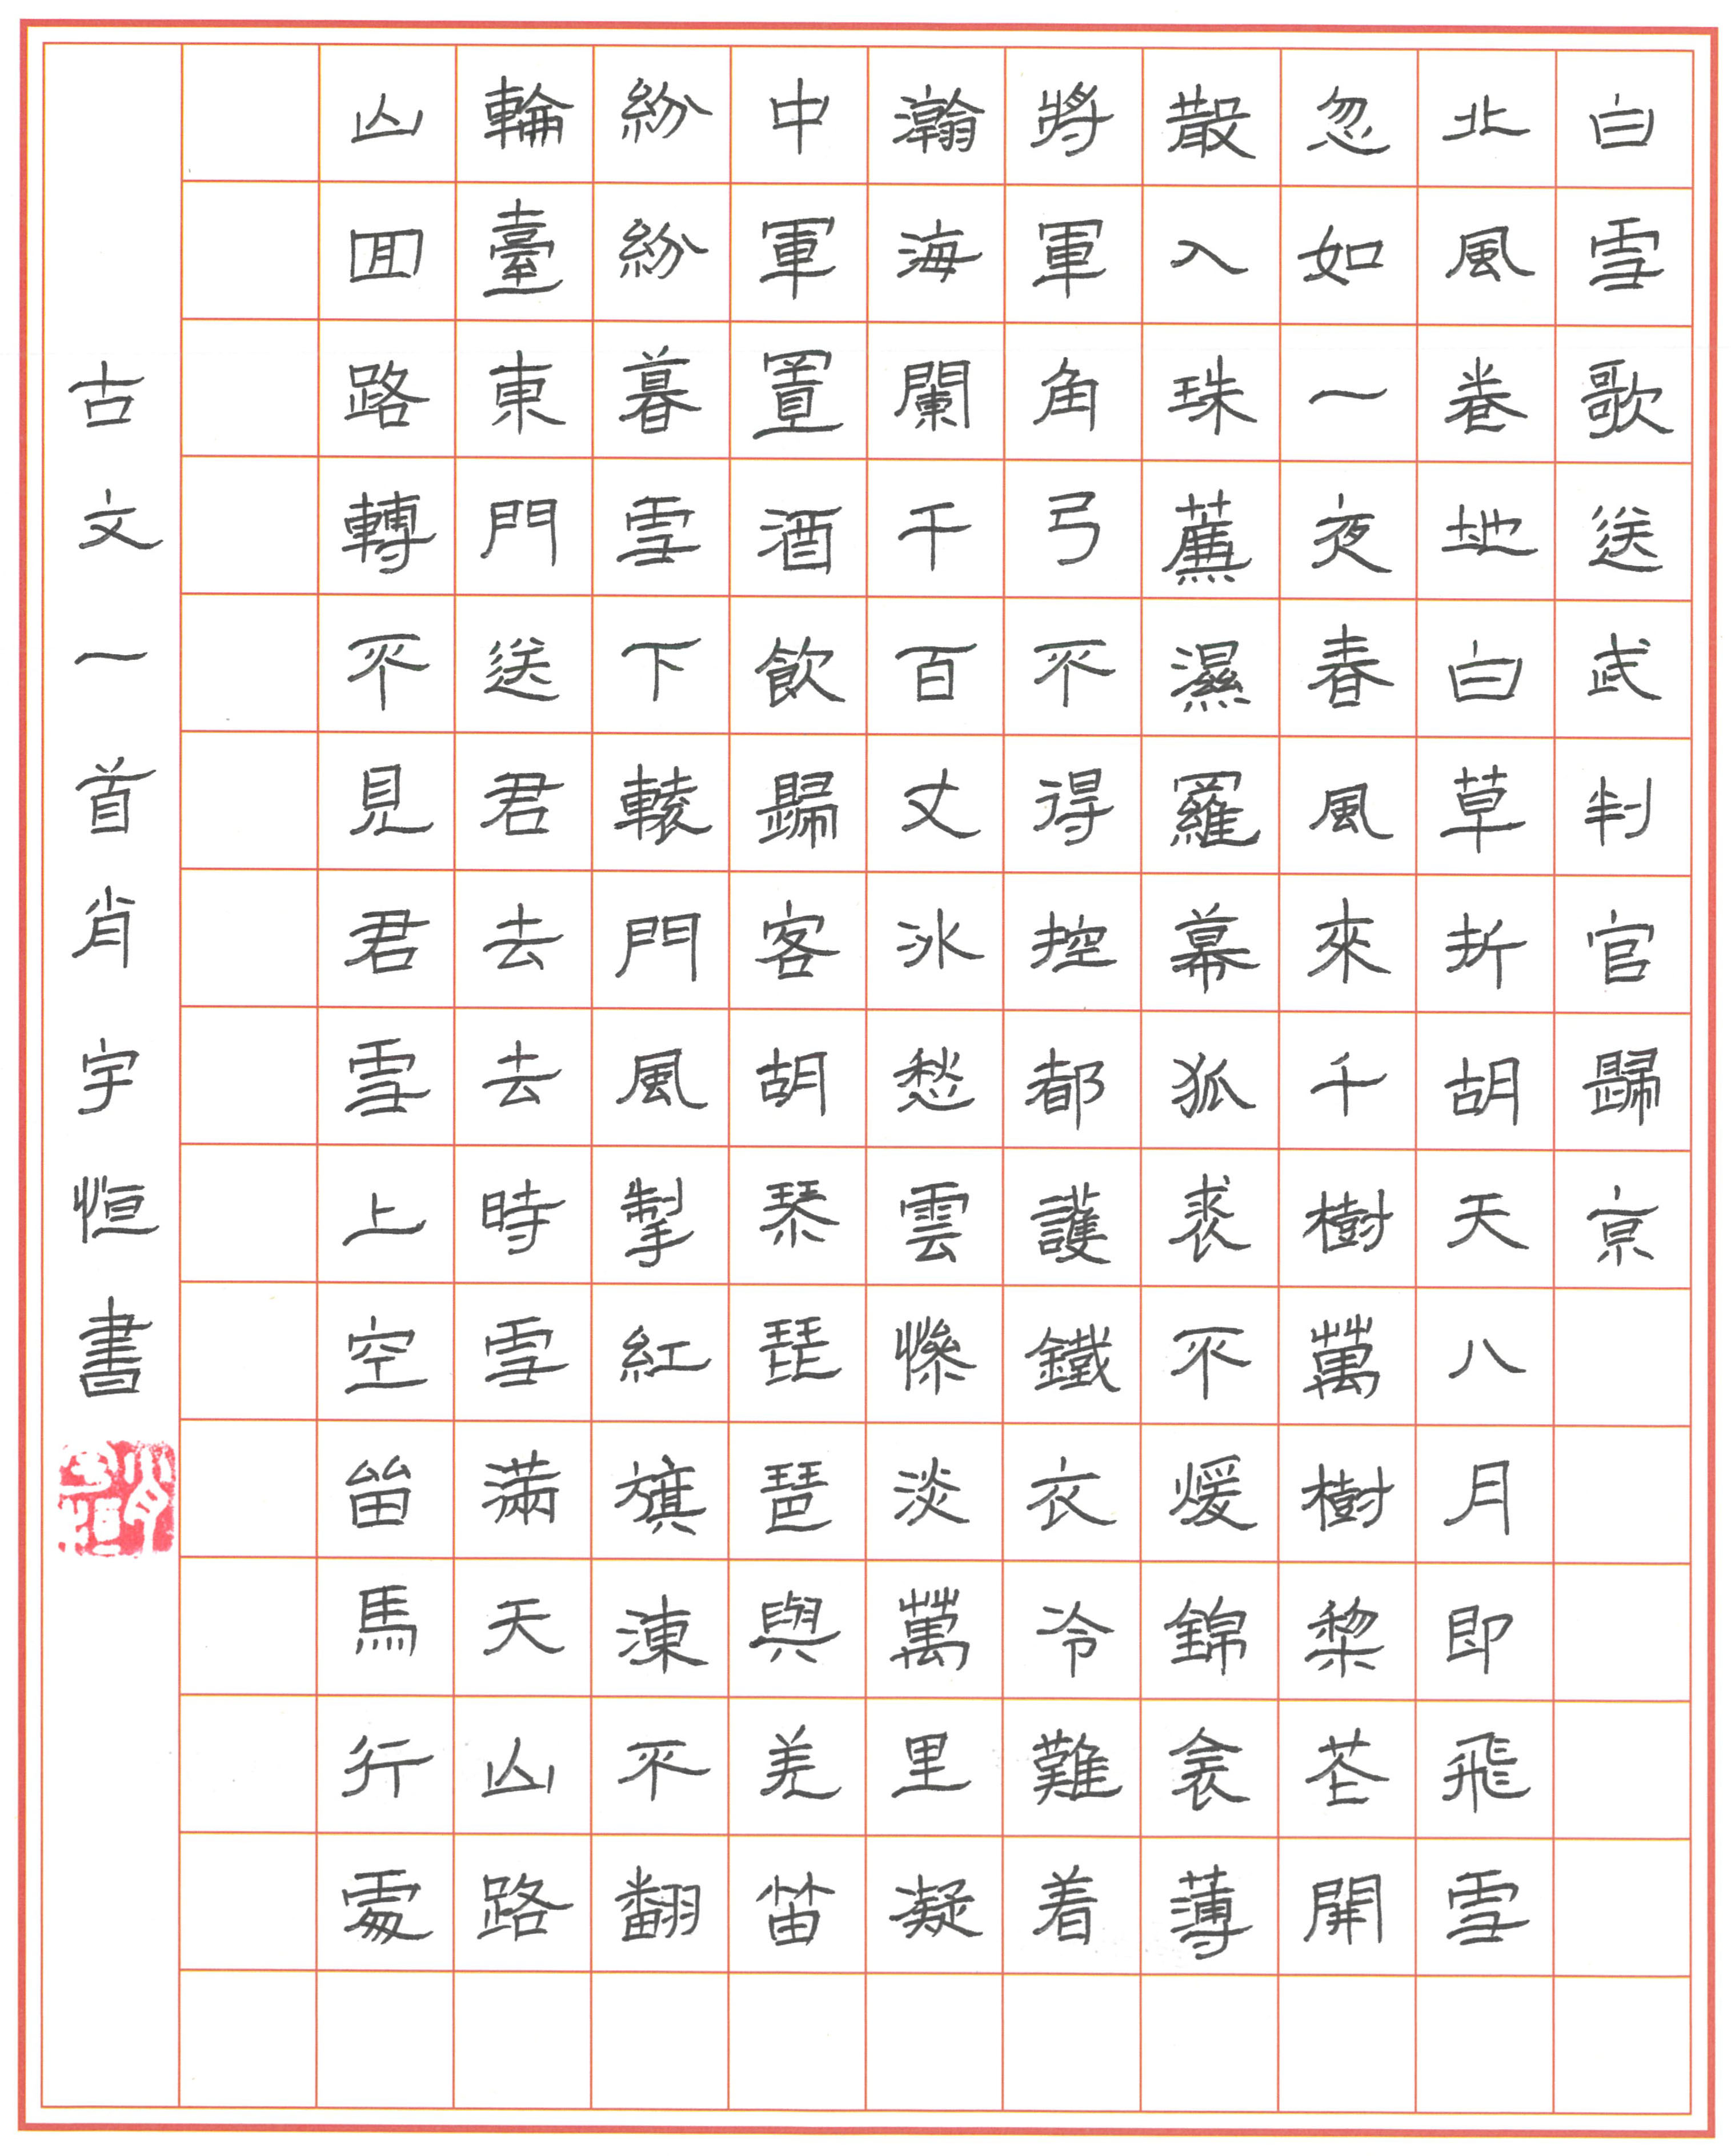 白雪歌送武判官歸京
北風卷地白草折胡天八月即飛雪
忽如一夜春風來千樹萬樹棃花開
散入珠薕濕羅幕狐裘不煖錦衾薄
將軍角弓不得控都護鐵衣冷難着
瀚海闌干百丈冰愁雲慘淡萬里凝
中軍置酒飲歸客胡琴琵琶與羌笛
紛紛暮雪下轅門風掣紅旗涷不翻
輪臺東門送君去去時雪滿天山路
山回路轉不見君雪上空留馬行處
古文一首肖宇恒書
肖宇恒